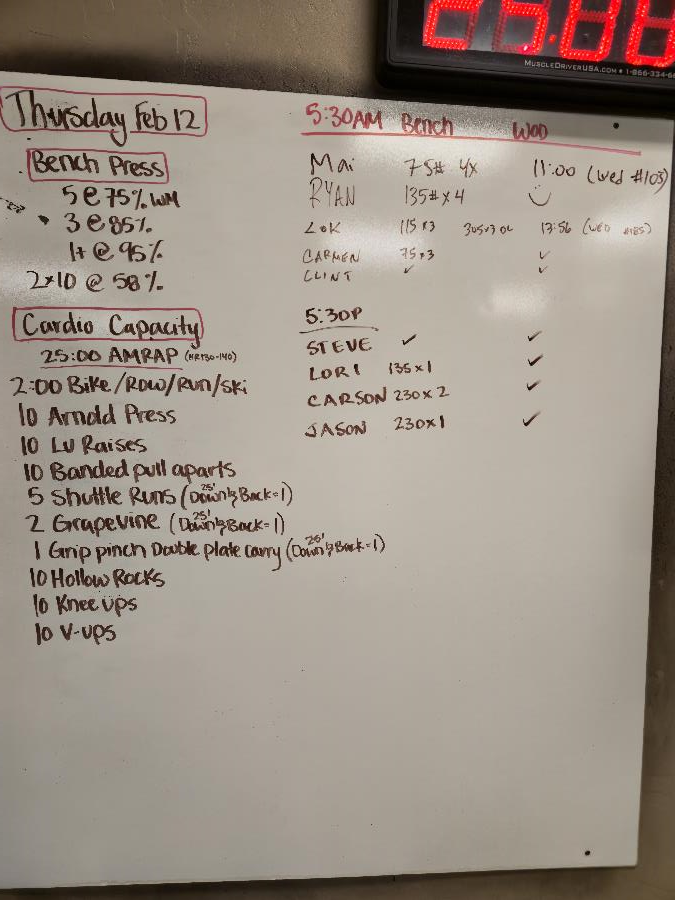 MUSCLEDRIVERUSA.COM • 1-866-334-66
Thursday Feb 12
Bench Press
5 @ 75% WM
3 @ 85%
1+ @ 95%
2x10 @ 58%
Cardio Capacity
25:00 AMRAP (HR130-140)
2:00 Bike/Row/Run/Ski
10 Arnold Press
10 LU Raises
10 Banded pull aparts
5 Shuttle Runs (25' Down & Back=1)
2 Grapevine (25' Down & Back=1)
1 Grip pinch Double plate carry (25' Down & Back=1)
10 Hollow Rocks
10 Knee ups
10 V-ups
5:30AM Bench WOD
Mai 75# 4x 11:00 (Wed #103)
RYAN 135# x 4
LOK 115 x3 13:56 (WED #185)
CARMEN 75x3 ✓
CLINT ✓ ✓
5:30P
STEVE ✓ ✓
LORI 135x1 ✓
CARSON 230x2 ✓
JASON 230x1 ✓